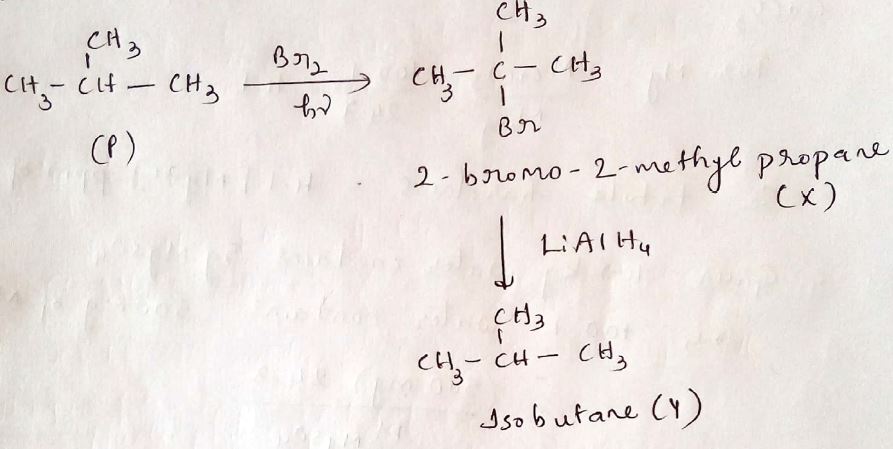 CH3
CH3
CH3 - CH - CH3
Br2
hν
CH3 - C - CH3
Br
(P)
2-bromo-2-methyl propane
(X)
LiAlH4
CH3
CH3 - CH - CH3
Isobutane (Y)